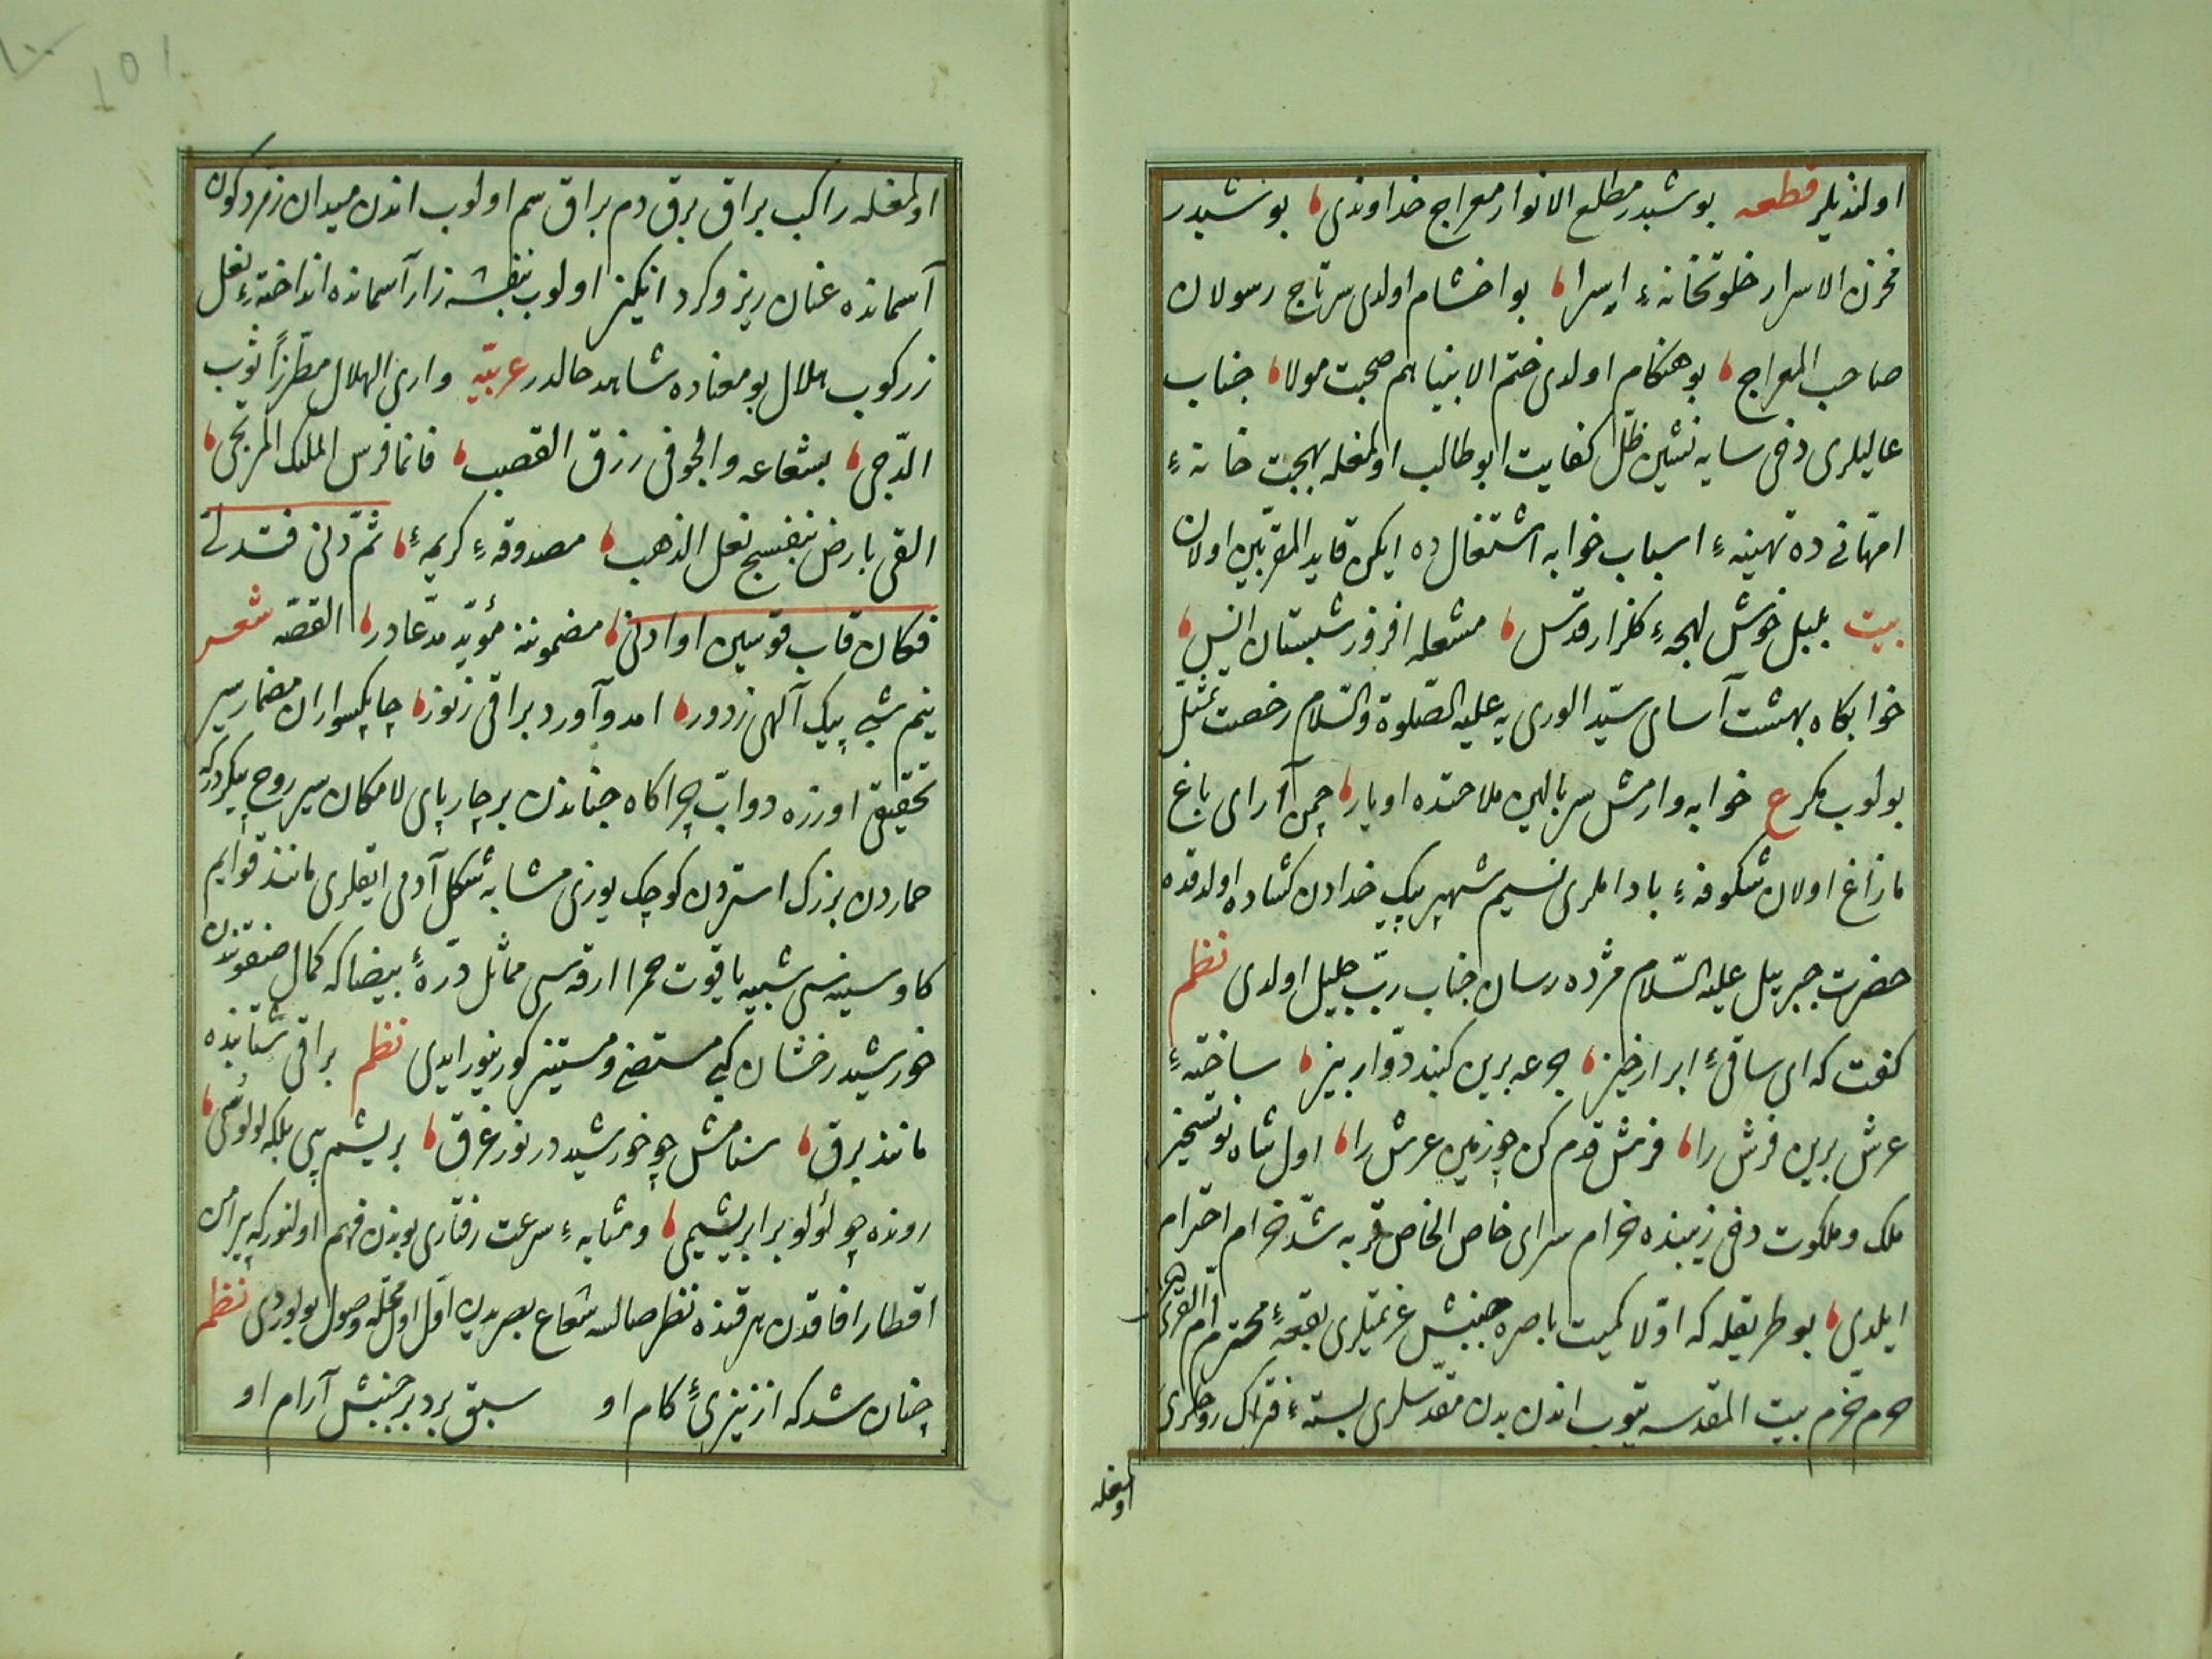 اولنديلر قطعه بو شبدر مطلع الانوار معراج خداوندی بو شبدر
مخزن الاسرار خلوتخانهٔ اسرا بو اخشام اولدی سرتاج رسولان
صاحب المعراج بو هنكام اولدی ختم الانبيا هم صحبت مولا جناب
عاليلری دخی سايه نشين ظل كفايت ابو طالب اولمغله بهجت خانهٔ
امهانی ده تهيئهٔ اسباب خوابه اشتغال ده ايكن قايد المقربين اولان
بيت بلبل خوش لهجهٔ كلزار قدس مشعله افروز شبستان انس
خوابكاه بهشت آسای سيد الوری يه عليه الصلوة والسلام رخصت تمثل
بولوب مكر ع خوابه وارمش سر بالين ملاحتده او يار چمن آرای باغ
مازاغ اولان شكوفهٔ باداملری نسيم شهپر پيك خدادن كشاده اولدقده
حضرت جبريل عليه السلام مژده رسان جناب رب جليل اولدی نظم
كفت كه ای ساقیٔ ابرار خيز جرعه برين كنبد دوار بيز ساختهٔ
عرش برين فرش را فرش قدم كن چو زمين عرش را اول شاه نو تسخير
ملك و ملكوت دخی زيبنده خرام سرای خاص الخاص قربه شد خرام احترام
ايلدی بو طريقله كه اولا كميت باصره جنبش عزيمتلری بقعهٔ محترم ام القری
حرم خرم بيت المقدسه يتوب اندن بدن مقدسلری بستهٔ فتراك روحلری
اولمغله
اولمغله راكب براق برق دم براق سم اولوب اندن ميدان زمردكون
آسمانده عنان ريز و كرد انكيز اولوب بنفشه زار آسمانده انداختهٔ نعل
زركوب هلال بو معناده شاهد حالدر عربيّه واری الهلال مطرزاً ثوب
الدجی بشعاعه والجو فی رزق القصب فانما فرس الملك المرتجی
القی بارض بنفسج نعل الذهب مصدوقهٔ كريمهٔ ثم دنی فتدلی
فكان قاب قوسين او ادنی مضموننه مؤيد مدعادر القصه شعر
نيم شبی پيك آلهی ز دور امد و آورد براقی ز نور چابكسواران مضمار سير
تحقيق اوزره دواب چراكاه جناندن بر چارپای لامكان سير روح پيكردر كه
حماردن بزرك استردن كوچك يوزی مشابه شكل آدمی ايقلری مانند قوايم
كاو سينه سی شبيه ياقوت حمرا ارقه سی مماثل درهٔ بيضا كه كمال صفوتندن
خورشيد رخشان كبی مستضئ و مستنير كورينور ايدی نظم براقی شتابنده
مانند برق ستامش چو خورشيد در نور غرق بريشم پی بلكه لولؤ سمی
رونده چو لؤلو بر ابريشمی و مثابهٔ سرعت رفتاری بوندن فهم اولنور كه پيرامن
اقطار افاقدن هر قنده نظر صالسه شعاع بصريدن اول اول محله وصول بولوردی نظم
چنان شد كه از تيزیٔ كام او سبق برد بر جنبش آرام او